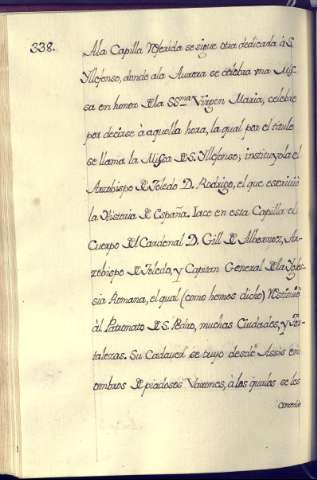 338.
A la Capilla referida se sigue otra dedicada à S.
Yllefonso, donde á la Aurora se celebra una Mis-
sa en honor de la SS.ma Virgen Maria, celebre
por decirse à aquella hora, la qual por el titulo
se llama la Missa de S. Yllefonso; instituyola el
Arzobispo de Toledo D. Rodrigo, el que escrivió
la Historia de España. Iace en esta Capilla el
Cuerpo del Cardenal D. Gill de Albornoz, Ar-
zobispo de Toledo, y Capitan General de la Ygle-
sia Romana, el qual (como hemos dicho) restituió
àl Patronato de S. Pedro, muchas Ciudades, y For-
talezas. Su Cadaver se truxo desde Assis en
ombros de piadosos Varones, à los quales se les